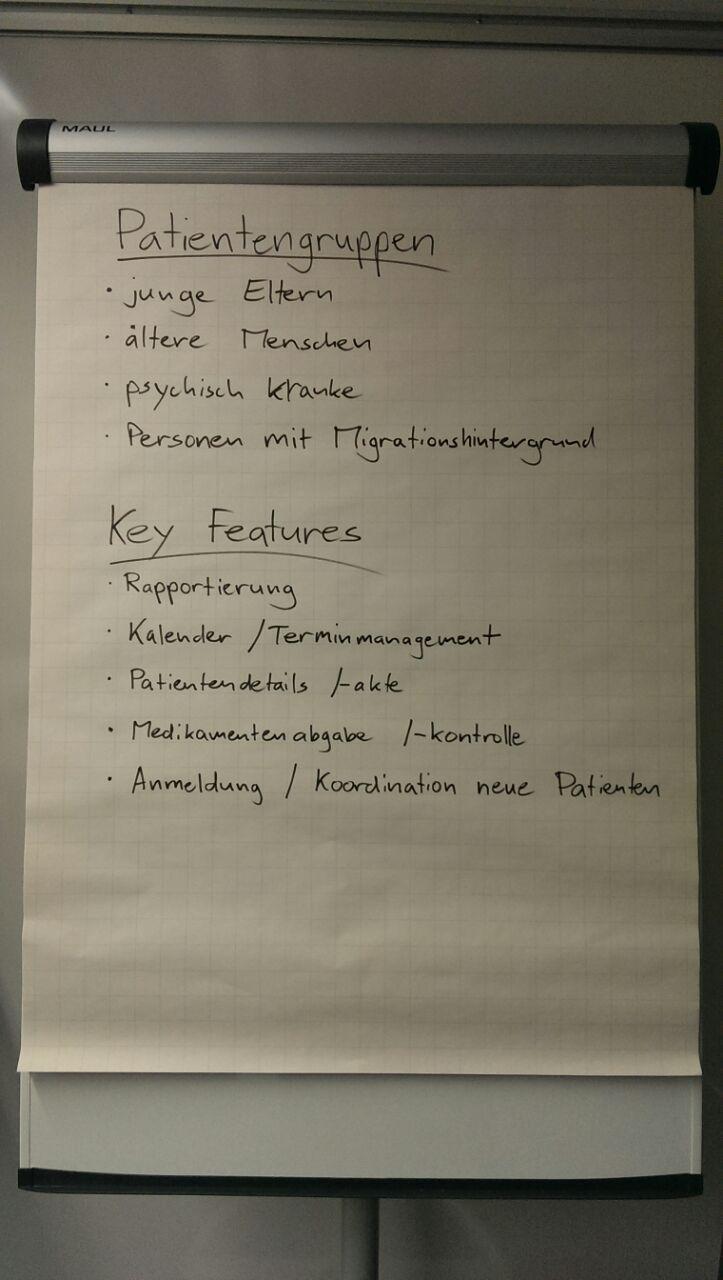 MAUL
Patientengruppen
· junge Eltern
· ältere Menschen
· psychisch kranke
· Personen mit Migrationshintergrund
Key Features
· Rapportierung
· Kalender / Terminmanagement
· Patientendetails /-akte
· Medikamentenabgabe /-kontrolle
· Anmeldung / Koordination neue Patienten